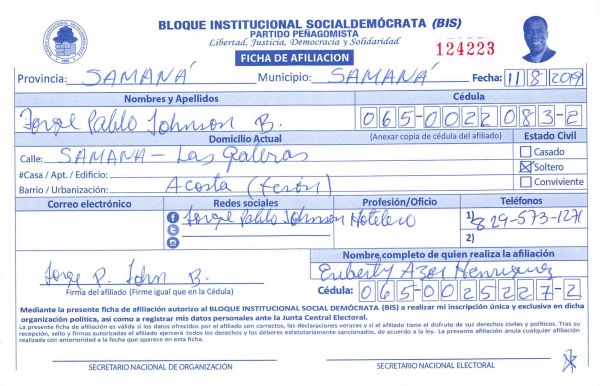 BLOQUE INSTITUCIONAL SOCIALDEMÓCRATA (BIS)
PARTIDO PEÑAGOMISTA
Libertad, Justicia, Democracia y Solidaridad
FICHA DE AFILIACION
124223
Provincia: SAMANÁ Municipio: SAMANÁ Fecha: 11/8/2019
Nombres y Apellidos Cédula
Jorge Pablo Johnson B. 065-0022083-2
Domicilio Actual (Anexar copia de cédula del afiliado) Estado Civil
Calle: SAMANA - Las Galeras Casado
#Casa / Apt. / Edificio: Soltero
Barrio / Urbanización: Acosta Conviviente
Correo electrónico Redes sociales Profesión/Oficio Teléfonos
Jorge Pablo Johnson Hotelero 1) 829-573-1271
2)
Nombre completo de quien realiza la afiliación
Jorge P. John B. Henriquez
Firma del afiliado (Firme igual que en la Cédula) Cédula: 065-0025227-2
Mediante la presente ficha de afiliación autorizo al BLOQUE INSTITUCIONAL SOCIAL DEMÓCRATA (BIS) a realizar mi inscripción única y exclusiva en dicha
organización política, así como a registrar mis datos personales ante la Junta Central Electoral.
La presente ficha de afiliación es válida si los datos ofrecidos por el afiliado son correctos, las declaraciones veraces y si el afiliado tiene el disfrute de sus derechos civiles y políticos. Tras su
recepción, sello y firmas autorizadas el afiliado ejercerá todos los derechos y los deberes estatutariamente sancionados, de acuerdo a la ley. La presente afiliación anula cualquier afiliación
realizada con anterioridad a la fecha que aparece en esta ficha.
SECRETARIO NACIONAL DE ORGANIZACIÓN SECRETARIO NACIONAL ELECTORAL